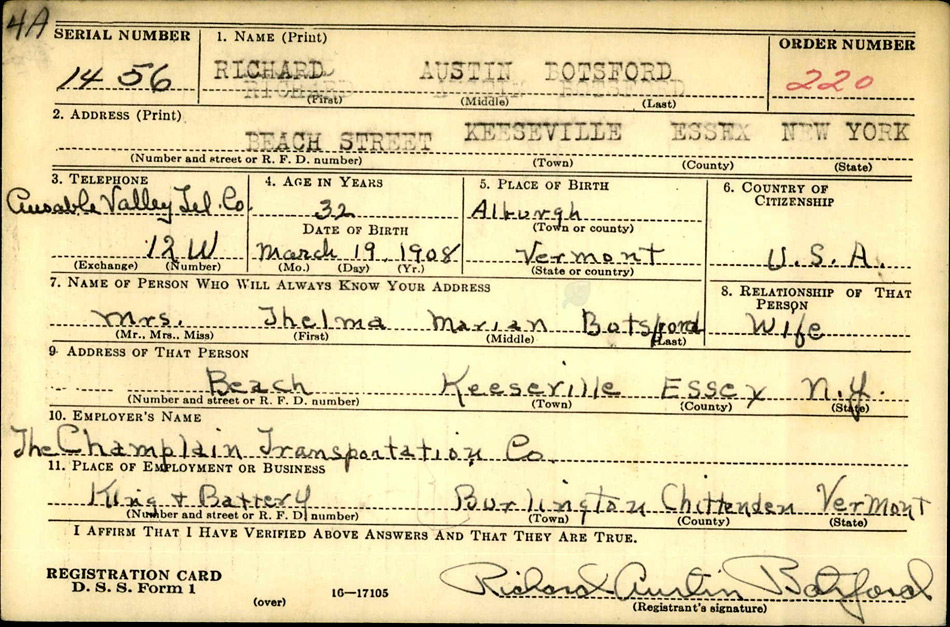 4A
SERIAL NUMBER 1. NAME (Print) ORDER NUMBER
1456 RICHARD AUSTIN BOTSFORD 220
(First) (Middle) (Last)
2. ADDRESS (Print)
BEACH STREET KEESEVILLE ESSEX NEW YORK
(Number and street or R. F. D. number) (Town) (County) (State)
3. TELEPHONE 4. AGE IN YEARS 5. PLACE OF BIRTH 6. COUNTRY OF CITIZENSHIP
Ausable Valley Tel. Co. 32 Alburgh
DATE OF BIRTH (Town or county)
12 W March 19 1908 Vermont U.S.A.
(Exchange) (Number) (Mo.) (Day) (Yr.) (State or country)
7. NAME OF PERSON WHO WILL ALWAYS KNOW YOUR ADDRESS 8. RELATIONSHIP OF THAT PERSON
Mrs. Thelma Marian Botsford Wife
(Mr., Mrs., Miss) (First) (Middle) (Last)
9. ADDRESS OF THAT PERSON
Beach Keeseville Essex N.Y.
(Number and street or R. F. D. number) (Town) (County) (State)
10. EMPLOYER'S NAME
The Champlain Transportation Co
11. PLACE OF EMPLOYMENT OR BUSINESS
King + Battery Burlington Chittenden Vermont
(Number and street or R. F. D. number) (Town) (County) (State)
I AFFIRM THAT I HAVE VERIFIED ABOVE ANSWERS AND THAT THEY ARE TRUE.
REGISTRATION CARD
D. S. S. Form 1
(over) 16—17105
Richard Austin Botsford
(Registrant's signature)